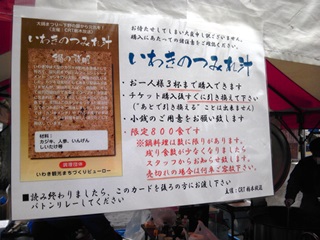 いわきのつみれ汁
鍋の説明
材料:
カジキ、人参、いんげん
しいたけ等
いわき観光まちづくりビューロー
お待たせしてしまい大変申し訳ございません。
購入にあたっての諸注意をご確認ください。
いわきのつみれ汁
・お一人様3杯まで購入できます
・チケット購入後すぐに引き換えて下さい
(“あとで引き換える”ことは出来ません)
・小銭のご用意をお願い致します
・限定800食です
※鍋料理は数に限りがあります。
残り食数が少なくなりましたら
スタッフからお知らせ致します。
売切れの場合は何卒ご容赦下さい。
■読み終わりましたら、このカードを後ろの方にお渡し下さい
バトンリレーしてください
主催:CRT栃木放送